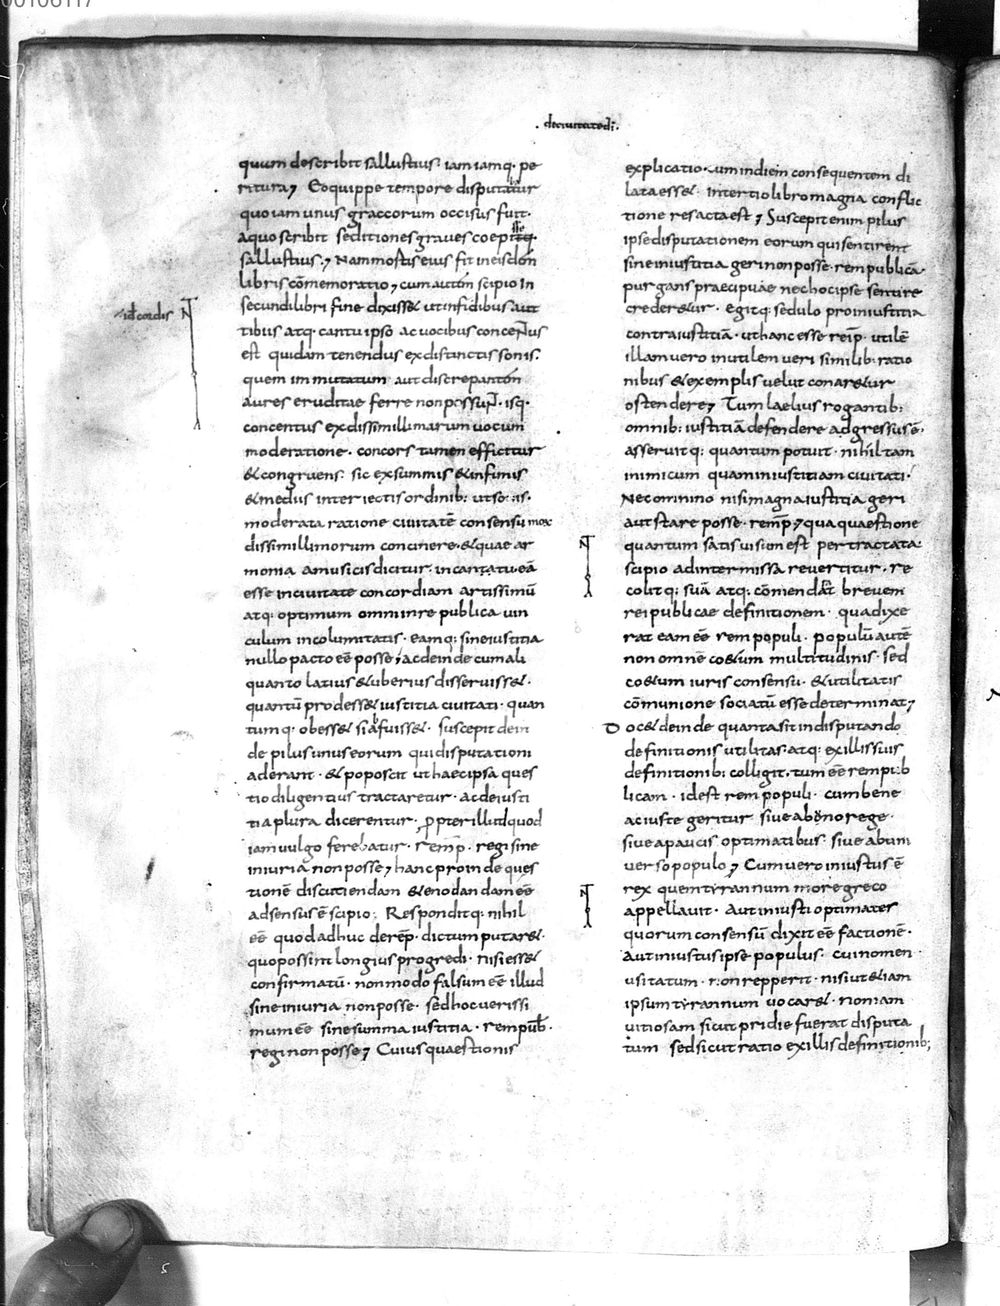 00106117
. deciuitatedī.
quum describit sallustius· iamiamq· pe
ritura; Eoquippe tempore disputatur
quo iam unus graccorum occisus fuit·
aquo scribit seditiones graues coeptas·
sallustius; Nammortis eius fit ineisdem
libris cōmemoratio; cum autem scipio in
secundi libri fine dixisset ut infidibus aut
tibiis atq· cantu ipso ac uocibus concentus
est quidam tenendus exdistinctis sonis·
quem immutatum aut discrepantem
aures eruditae ferre non possunt· isq·
concentus exdissimillimarum uocum
moderatione· concors tamen efficitur
& congruens· sic exsummis & infimis
& mediis interiectis ordinib: ut sonis·
moderata ratione ciuitatē consensu mox
dissimillimorum concinere· & quae ar
monia amusicis dicitur· incantatu eā
esse inciuitate concordiam artissimū
atq· optimum omni inre publica uin
culum incolumitatis· eamq; sineiustitia
nullo pacto eē posse; ac deinde cum ali
quanto latius & uberius disseruisset·
quantū prodesset iustitia ciuitati· quan
tumq· obesset si abfuisset· suscepit dein
de pilus unus eorum qui disputationi
aderant· & poposcit ut haec ipsa ques
tio diligentius tractaretur· ac deiusti
tia plura dicerentur· ꝓpter illud quod
iam uulgo ferebatur· remp̄· regi sine
iniuria non posse; hanc proinde ques
tionē discutiendam & enodandam eē
adsensus ē scipio; Respondit q· nihil
eē quod adhuc derep̄· dictum putaret·
quo possint longius progredi· nisi esset
confirmatū· non modo falsum eē illud
sine iniuria non posse· sed hoc uerissi
mum eē sine summa iustitia· rem pub̄·
regi non posse; Cuius quaestionis
id cordis
explicatio· cum indiem consequentem di
lata esset· Intertio libro magna conflic
tione res acta est; Suscepit enim pilus
ipse disputationem eorum qui sentirent
sine iniustitia geri non posse· rem publicā·
purgans praecipuae ne hoc ipse sentire
crederetur· Egitq: sedulo pro iniustitia
contra iustitiā· ut hanc esse reip̄· utilē
illam uero inutilem ueri similib: ratio
nibus & exemplis uelut conaretur
ostendere; Tum laelius rogantib:
omnib: iustitiā defendere adgressus ē·
asseruitq: quantum potuit· nihil tam
inimicum quam iniustitiam ciuitati·
Nec omnino nisi magna iustitia geri
aut stare posse· remp̄; qua quaestione
quantum satis uisum est pertractata
scipio ad intermissa reuertitur· re
colitq: suā atq: cōmendat breuem
rei publicae definitionem· qua dixe
rat eam eē rem populi· populū autē
non omnē coetum multitudinis· sed
coetum iuris consensu· & utilitatis
cōmunione sociatū esse determinat;
Docet deinde quanta sit indisputando
definitionis utilitas· atq: exillis suis
definitionib: colligit· tum eē rem pub
licam· id est rem populi· cum bene
ac iuste geritur siue ab uno rege·
siue a paucis optimatibus· siue ab uni
uerso populo; Cum uero iniustus ē
rex quem tyrannum more greco
appellauit· Aut iniusti optimates
quorum consensū dixit eē factionē·
Aut iniustus ipse populus· cui nomen
usitatum· non repperit· nisi ut &iam
ipsum tyrannum uocaret· non iam
uitiosam sicut pridie fuerat disputa
tum sed sicut ratio exillis definitionib;